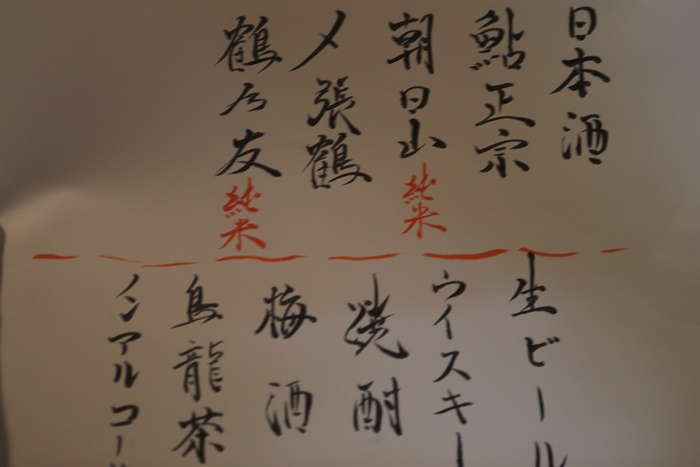 日本酒
鮎正宗
朝日山 純米
〆張鶴
鶴乃友 純米
生ビール
ウイスキー
焼酎
梅酒
烏龍茶
ノンアルコール